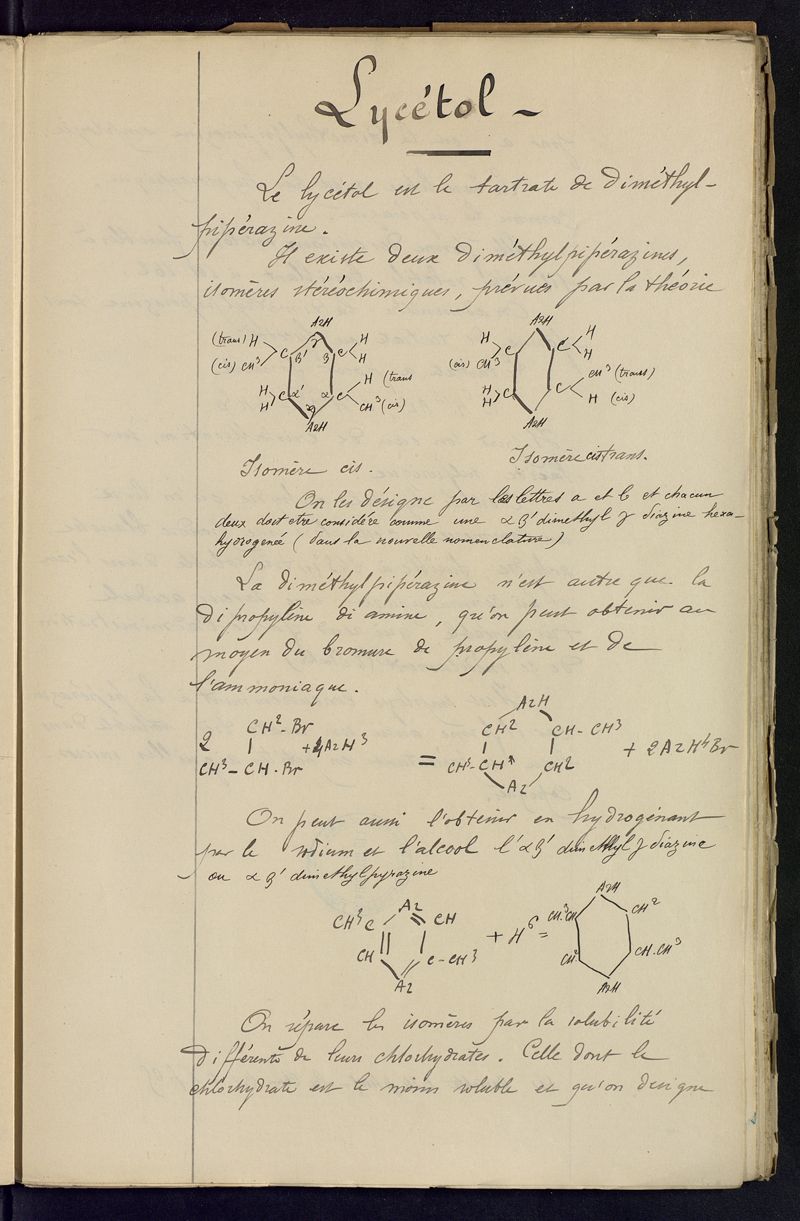 Lycétol -
Le lycétol est le tartrate de Diméthyl-
pipérazine.
Il existe deux Diméthylpipérazines,
isomères stéréochimiques, prévues par la théorie
AzH AzH
(trans) H C β' γ β C H H C C H
(cis) CH³ H (cis) CH³ H
H C α' α C H (trans H C C CH³ (trans)
H γ' CH³ (cis) H H (cis)
AzH AzH
Isomère cis. Isomère cis trans.
On les désigne par les lettres a et b et chacun
deux doit etre considére comme une α β' dimethyl γ diazine hexa-
hydrogenée (dans la nouvelle nomenclature)
La diméthylpipérazine n'est autre que la
dipropylène diamine, qu'on peut obtenir au
moyen du bromure de propylène et de
l'ammoniaque.
AzH
2 CH²-Br CH² CH-CH³
+ 4AzH³ = + 2AzH⁴Br
CH³-CH-Br CH³-CH CH2
Az
On peut aussi l'obtenir en hydrogénant
par le sodium et l'alcool l'α β' dimethyl γ diazine
ou α β' dimethylpyrazine
Az AzH
CH³C CH CH³.CH CH²
+ H⁶ =
CH C-CH³ CH² CH.CH³
Az AzH
On sépare les isomères par la solubilité
différente de leurs chlorhydrates. Celle dont le
chlorhydrate est le moins soluble et qu'on designe